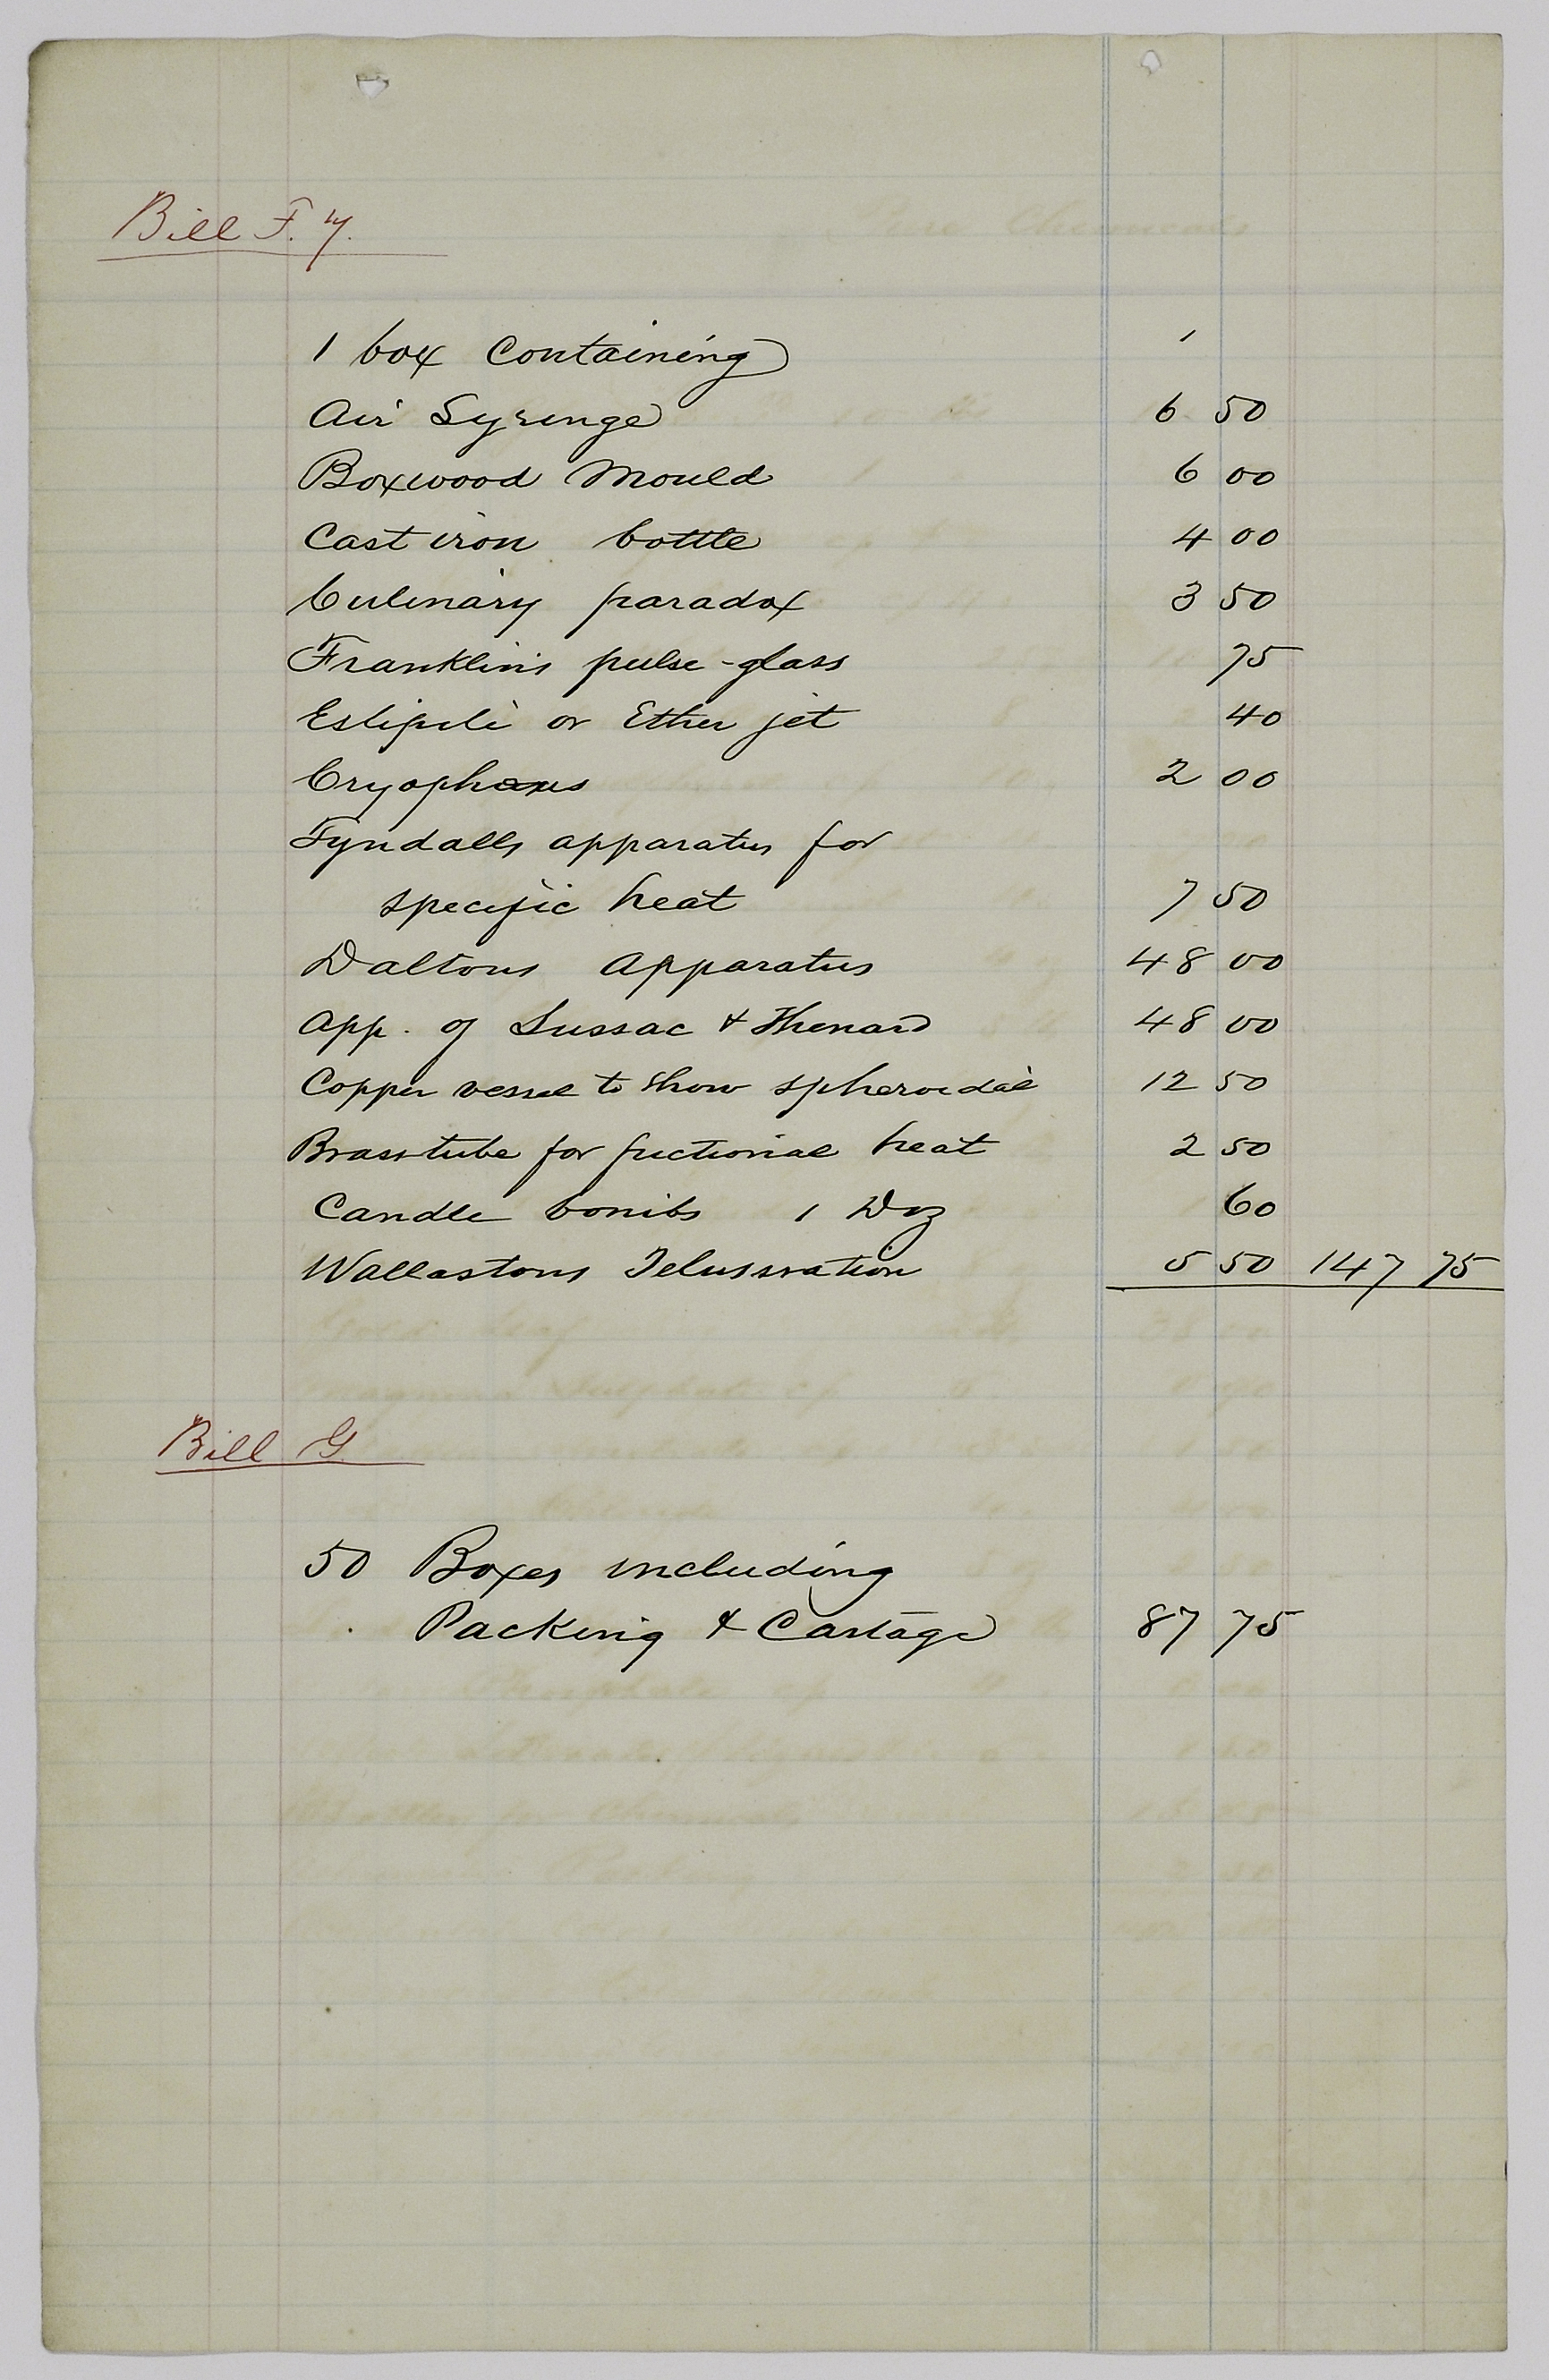 Bill F. 7.
1 box Containing 1
Air Syringe 6 50
Boxwood Mould 6 00
Cast iron bottle 4 00
Culinary paradox 3 50
Franklin's pulse-glass 75
or Ether jet 40
2 00
Tyndalls apparatus for
specific heat 7 50
Daltons Apparatus 48 00
App. of Lussac & Thenard 48 00
Copper vessel to show spheroidal 12 50
Brass tube for frictional heat 2 50
Candle bombs 1 Doz 60
Wallastons 5 50 147 75
Bill G
50 Boxes including
Packing & Cartage 87 75